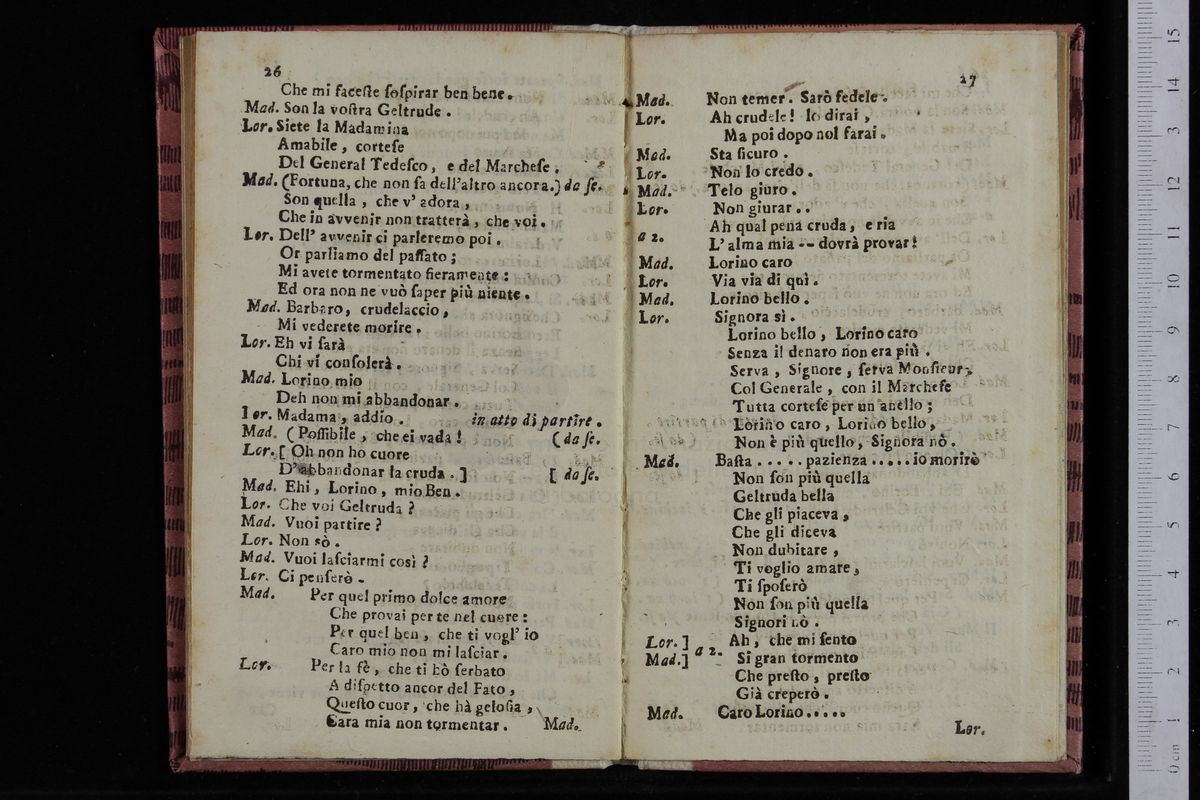 26
Che mi faceſte ſoſpirar ben bene.
Mad. Son la voſtra Geltrude.
Lor. Siete la Madamina
Amabile, corteſe
Del General Tedeſco, e del Marcheſe.
Mad. (Fortuna, che non ſa dell'altro ancora.) da ſe.
Son quella, che v' adora,
Che in avvenir non tratterà, che voi.
Lor. Dell' avvenir ci parleremo poi.
Or parliamo del paſſato;
Mi avete tormentato fieramente:
Ed ora non ne vuò ſaper più niente.
Mad. Barbaro, crudelaccio,
Mi vederete morire.
Lor. Eh vi ſarà
Chi vi conſolerà.
Mad. Lorino mio
Deh non mi abbandonar.
Lor. Madama, addio. in atto di partire.
Mad. (Poſſibile, che ei vada! (da ſe.
Lor. [Oh non hò cuore
D'abbandonar la cruda.] [ da ſe.
Mad. Ehi, Lorino, mio Ben.
Lor. Che voi Geltruda?
Mad. Vuoi partire?
Lor. Non sò.
Mad. Vuoi laſciarmi così?
Lor. Ci penſerò.
Mad. Per quel primo dolce amore
Che provai per te nel cuore:
Per quel ben, che ti vogl' io
Caro mio non mi laſciar.
Lor. Per la fè, che ti hò ſerbato
A diſpetto ancor del Fato,
Queſto cuor, che hà geloſia,
Cara mia non tormentar. Mad.
27
Mad. Non temer. Sarò fedele.
Lor. Ah crudele! Io dirai,
Ma poi dopo nol farai.
Mad. Sta ſicuro.
Lor. Non lo credo.
Mad. Telo giuro.
Lor. Non giurar..
Ah qual pena cruda, e ria
a 2. L'alma mia -- dovrà provar!
Mad. Lorino caro
Lor. Via via di quì.
Mad. Lorino bello.
Lor. Signora sì.
Lorino bello, Lorino caro
Senza il denaro non era più.
Serva, Signore, ſerva Monſieur,
Col Generale, con il Marcheſe
Tutta corteſe per un anello;
Lorino caro, Lorino bello,
Non è più quello, Signora nò.
Mad. Baſta ..... pazienza ..... io morirò
Non ſon più quella
Geltruda bella
Che gli piaceva,
Che gli diceva
Non dubitare,
Ti voglio amare,
Ti ſpoſerò
Non ſon più quella
Signori nò.
Lor. ] Ah, che mi ſento
Mad.] a 2. Si gran tormento
Che preſto, preſto
Già creperò.
Mad. Caro Lorino.....
Lor.
0 cm 1 2 3 4 5 6 7 8 9 10 11 12 13 14 15